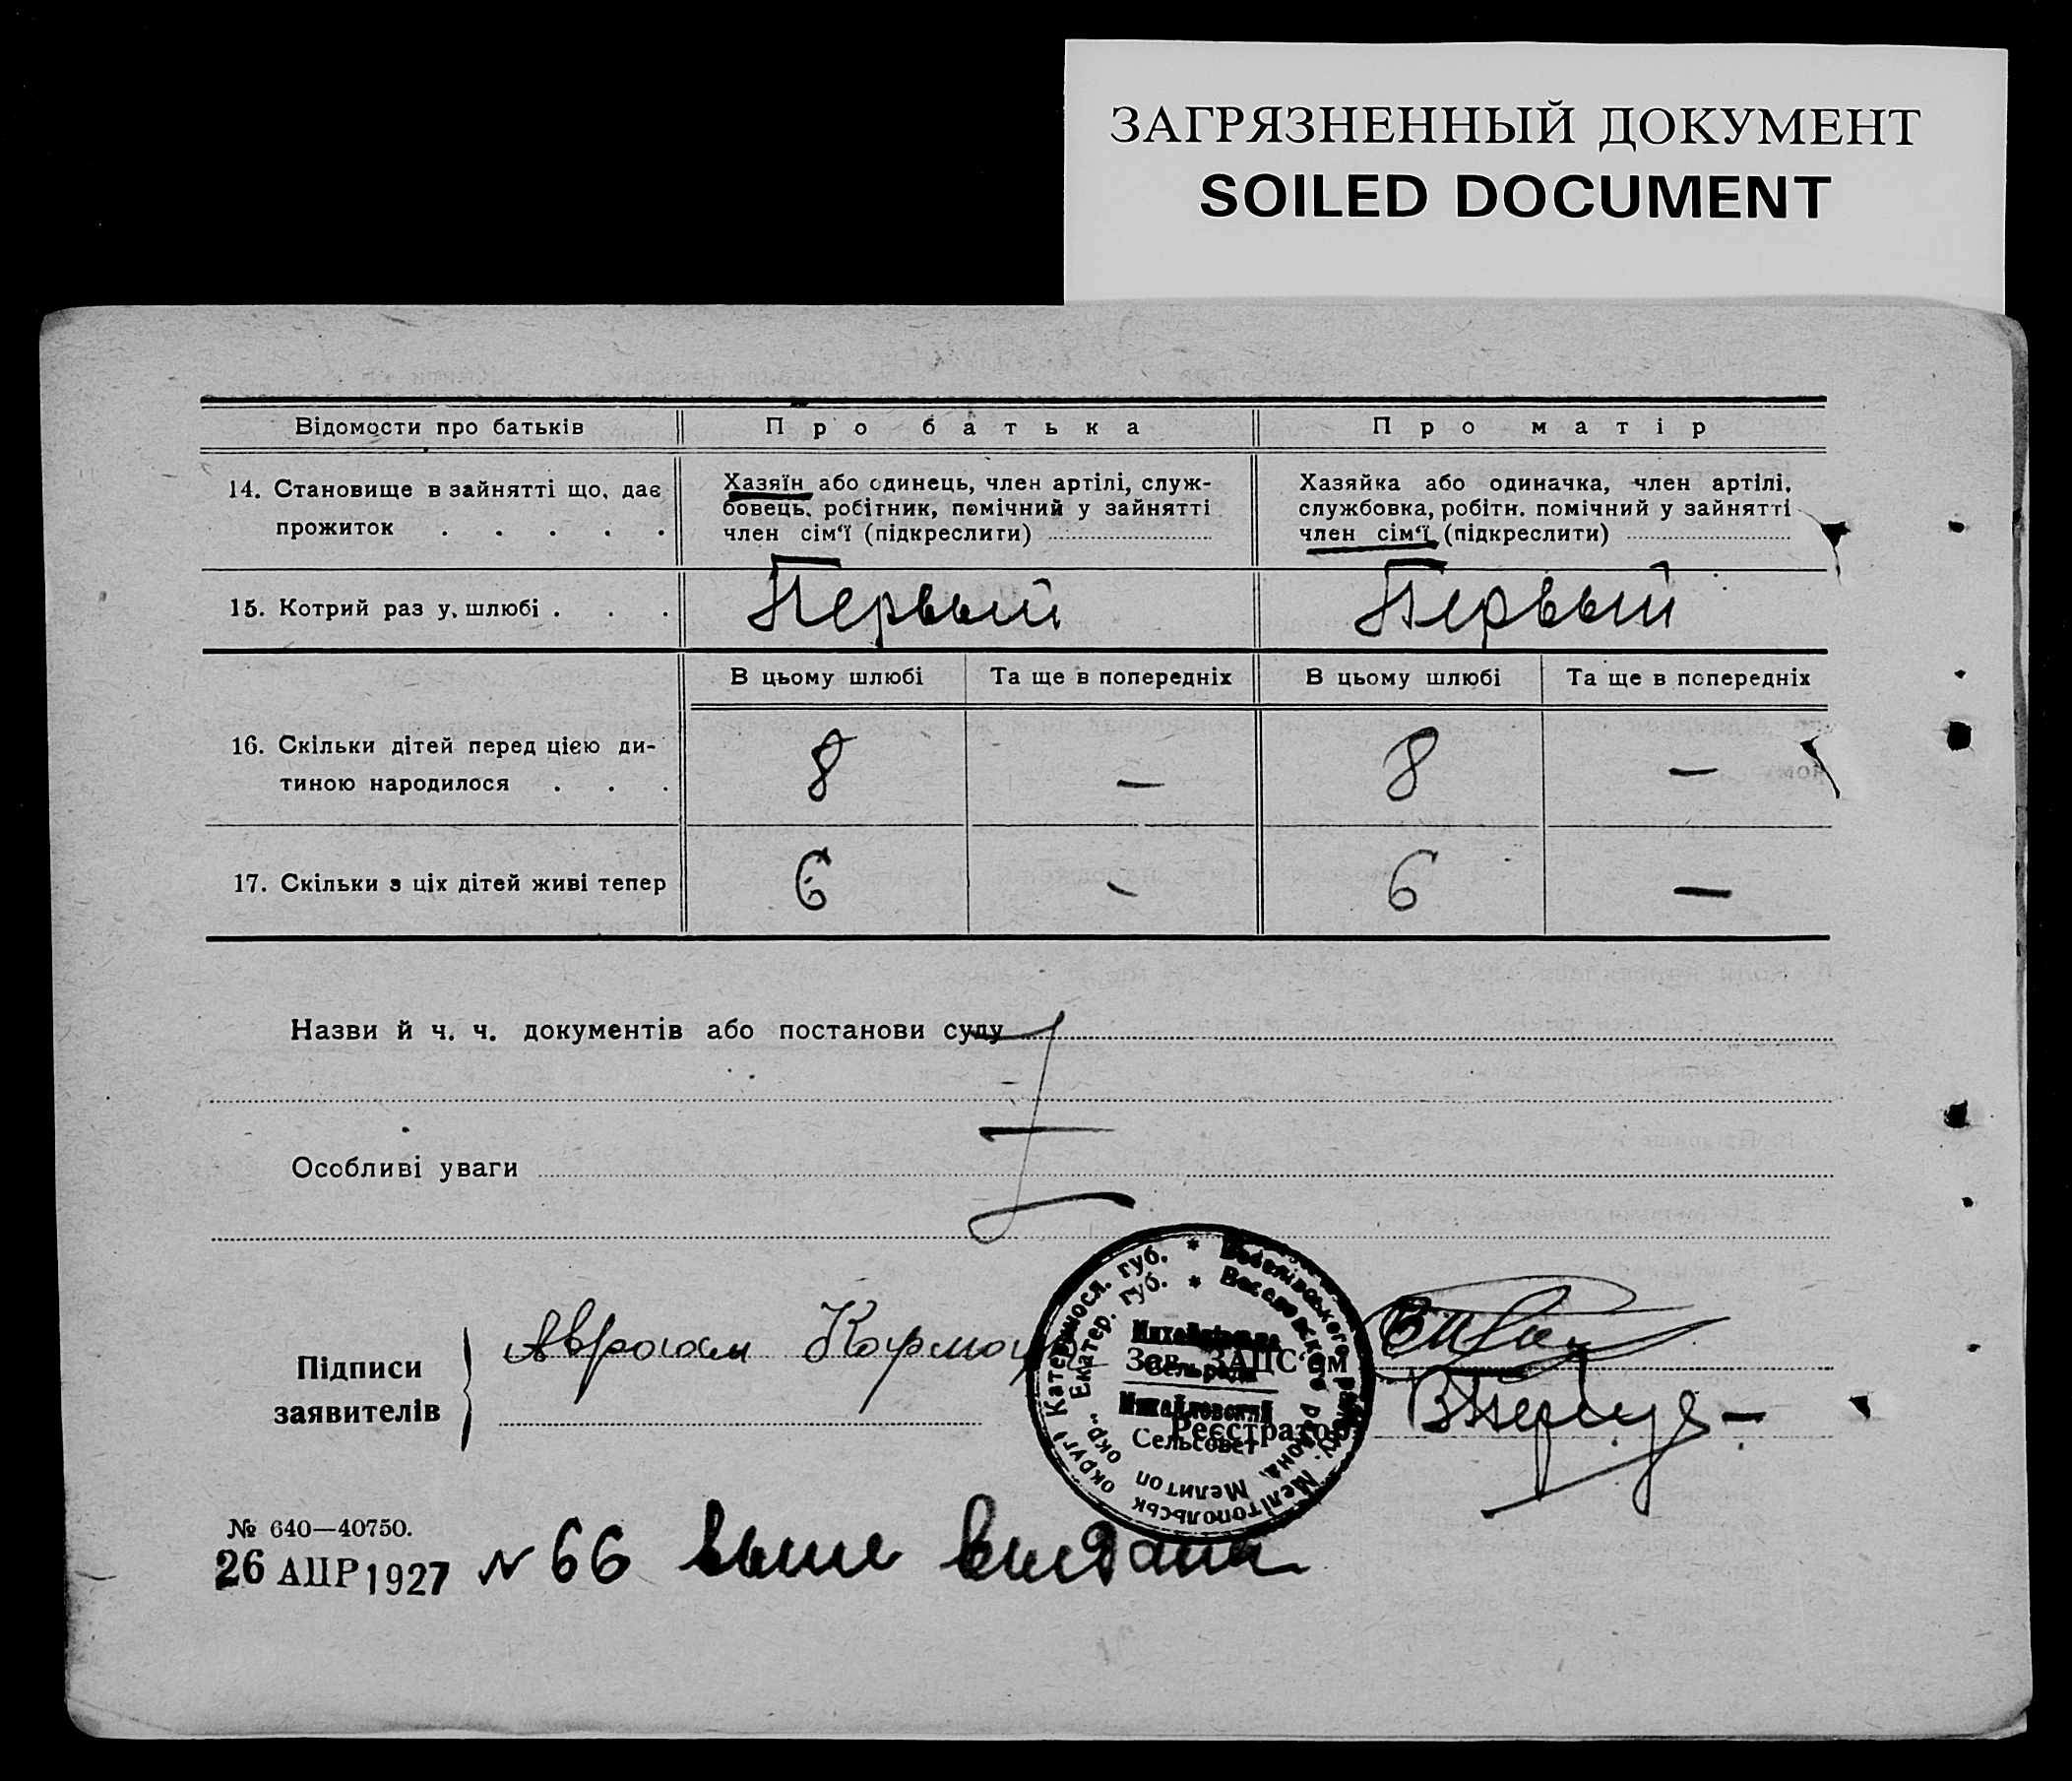 ЗАГРЯЗНЕННЫЙ ДОКУМЕНТ
SOILED DOCUMENT
Відомости про батьків
Про батька
Про матір
14. Становище в зайнятті що, дає
прожиток . . . . .
Хазяїн або одинець, член артілі, служ-
бовець, робітник, помічний у зайнятті
член сім'ї (підкреслити)
Хазяйка або одиначка, член артілі,
службовка, робітн. помічний у зайнятті
член сім'ї (підкреслити)
15. Котрий раз у шлюбі . . .
Первый
Первый
В цьому шлюбі
Та ще в попередніх
В цьому шлюбі
Та ще в попередніх
16. Скільки дітей перед цією ди-
тиною народилося . . .
8
—
8
—
17. Скільки з ціх дітей живі тепер
6
-
6
—
Назви й ч. ч. документів або постанови суду
Особливі уваги
Підписи
заявителів
Авраам
Зав. ЗАПС'ом
Реєстратор
Катериносл. губ. * Веселівського району, Мелітопольськ округі
Екатер. губ. * Веселовского района, Мелитоп окр.
Михайлівська
Сельрада
Михайловский
Сельсовет
№ 640—40750.
26 АПР 1927
N 66